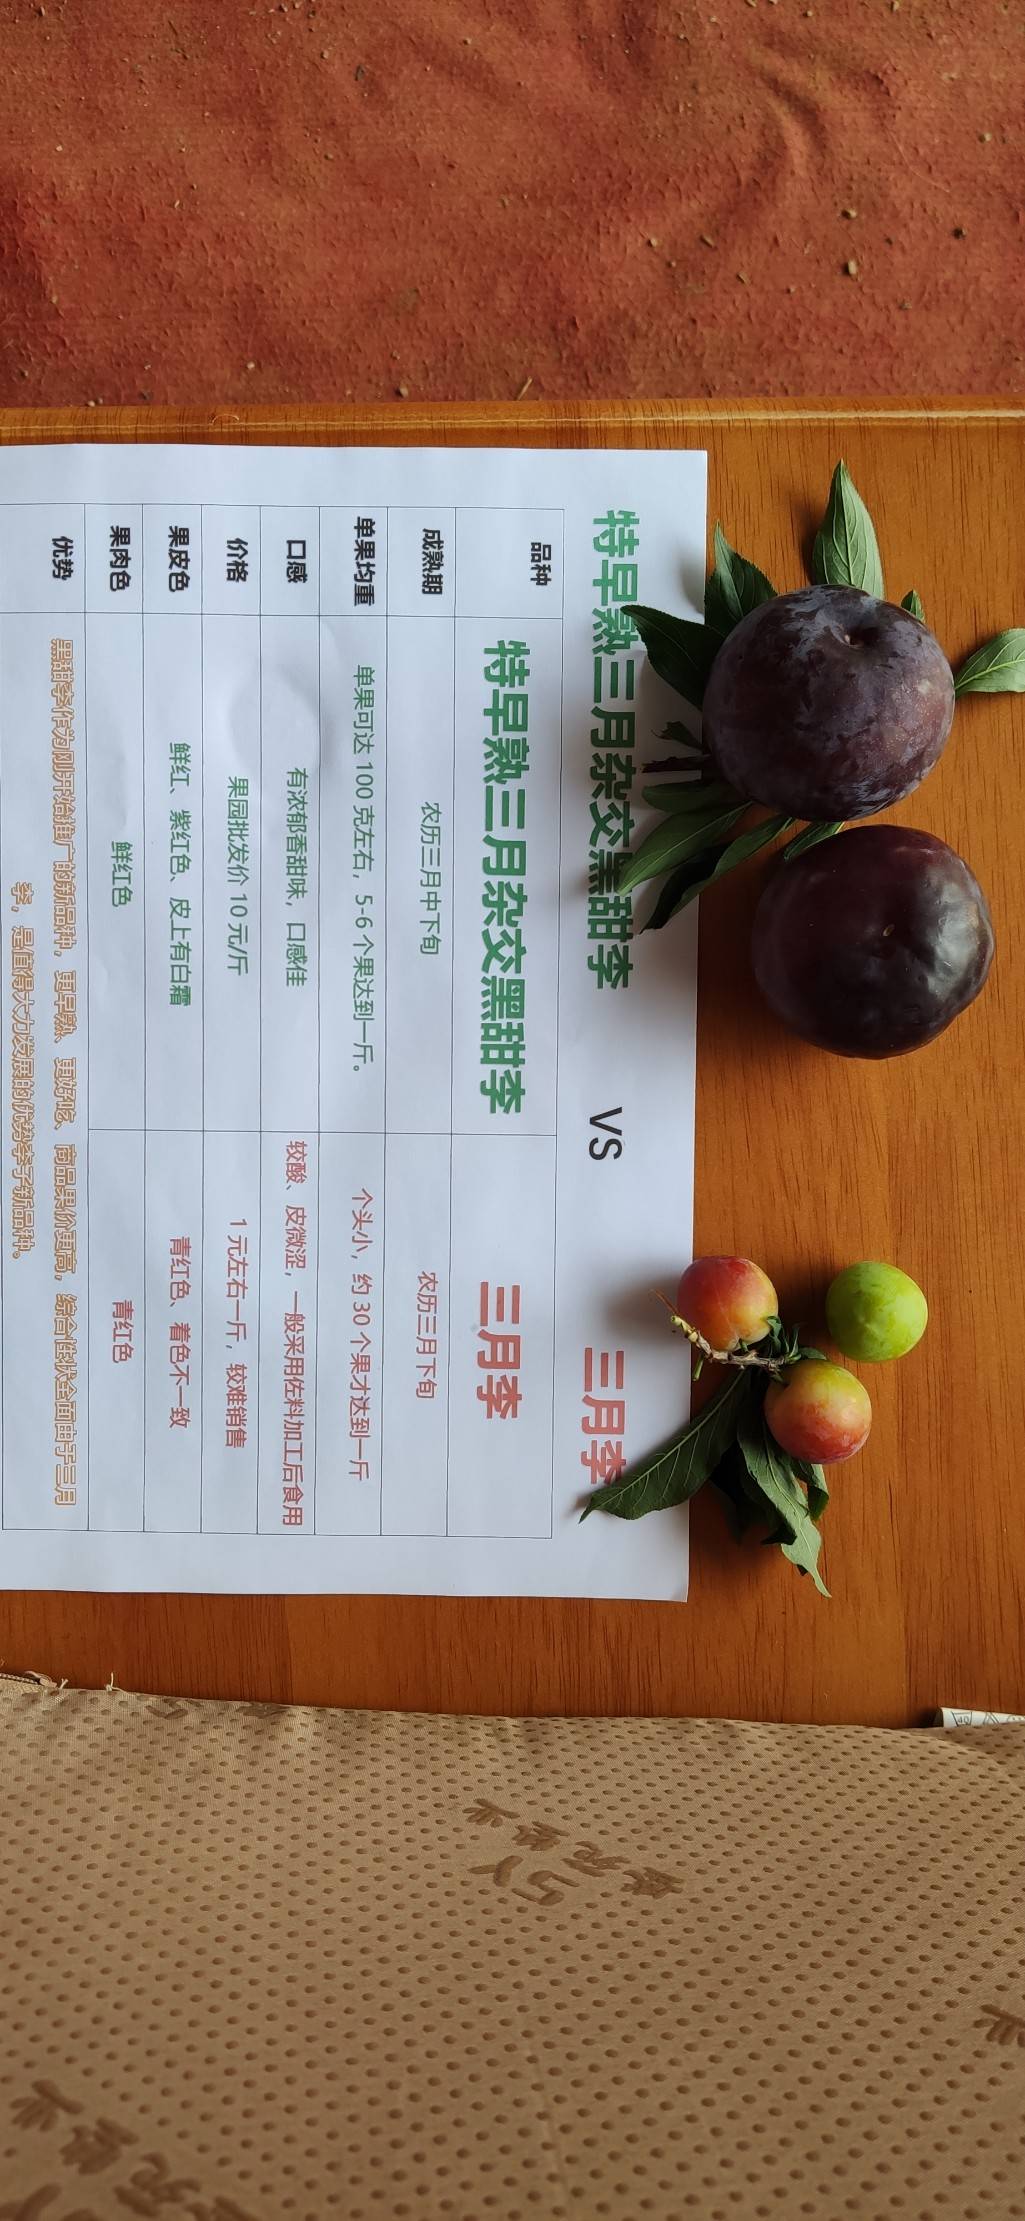 特早熟三月杂交黑甜李 VS 三月李
品种 特早熟三月杂交黑甜李 三月李
成熟期 农历三月中下旬 农历三月下旬
单果均重 单果可达 100 克左右，5-6 个果达到一斤。 个头小，约 30 个果才达到一斤
口感 有浓郁香甜味，口感佳 较酸、皮微涩，一般采用佐料加工后食用
价格 果园批发价 10 元/斤 1 元左右一斤，较难销售
果皮色 鲜红、紫红色、皮上有白霜 青红色、着色不一致
果肉色 鲜红色 青红色
优势 黑甜李作为刚开始推广的新品种，更早熟、更好吃、商品果价更高，综合性状全面由于三月
李，是值得大力发展的优势李子新品种。